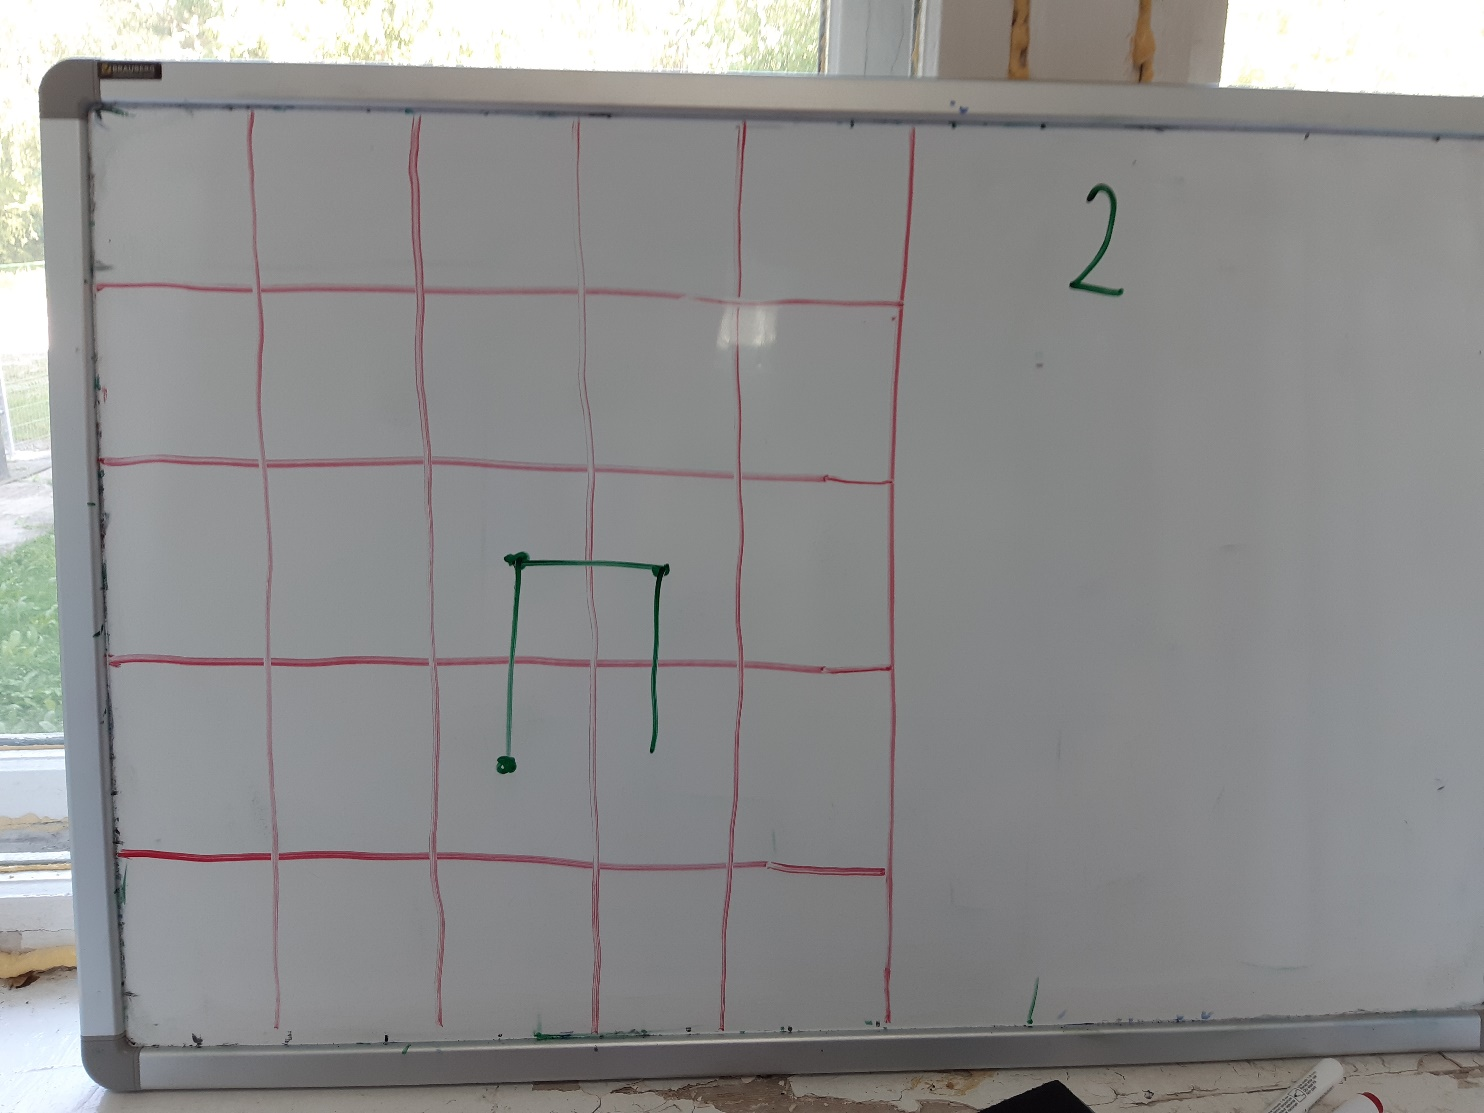 BRAUBERG
2